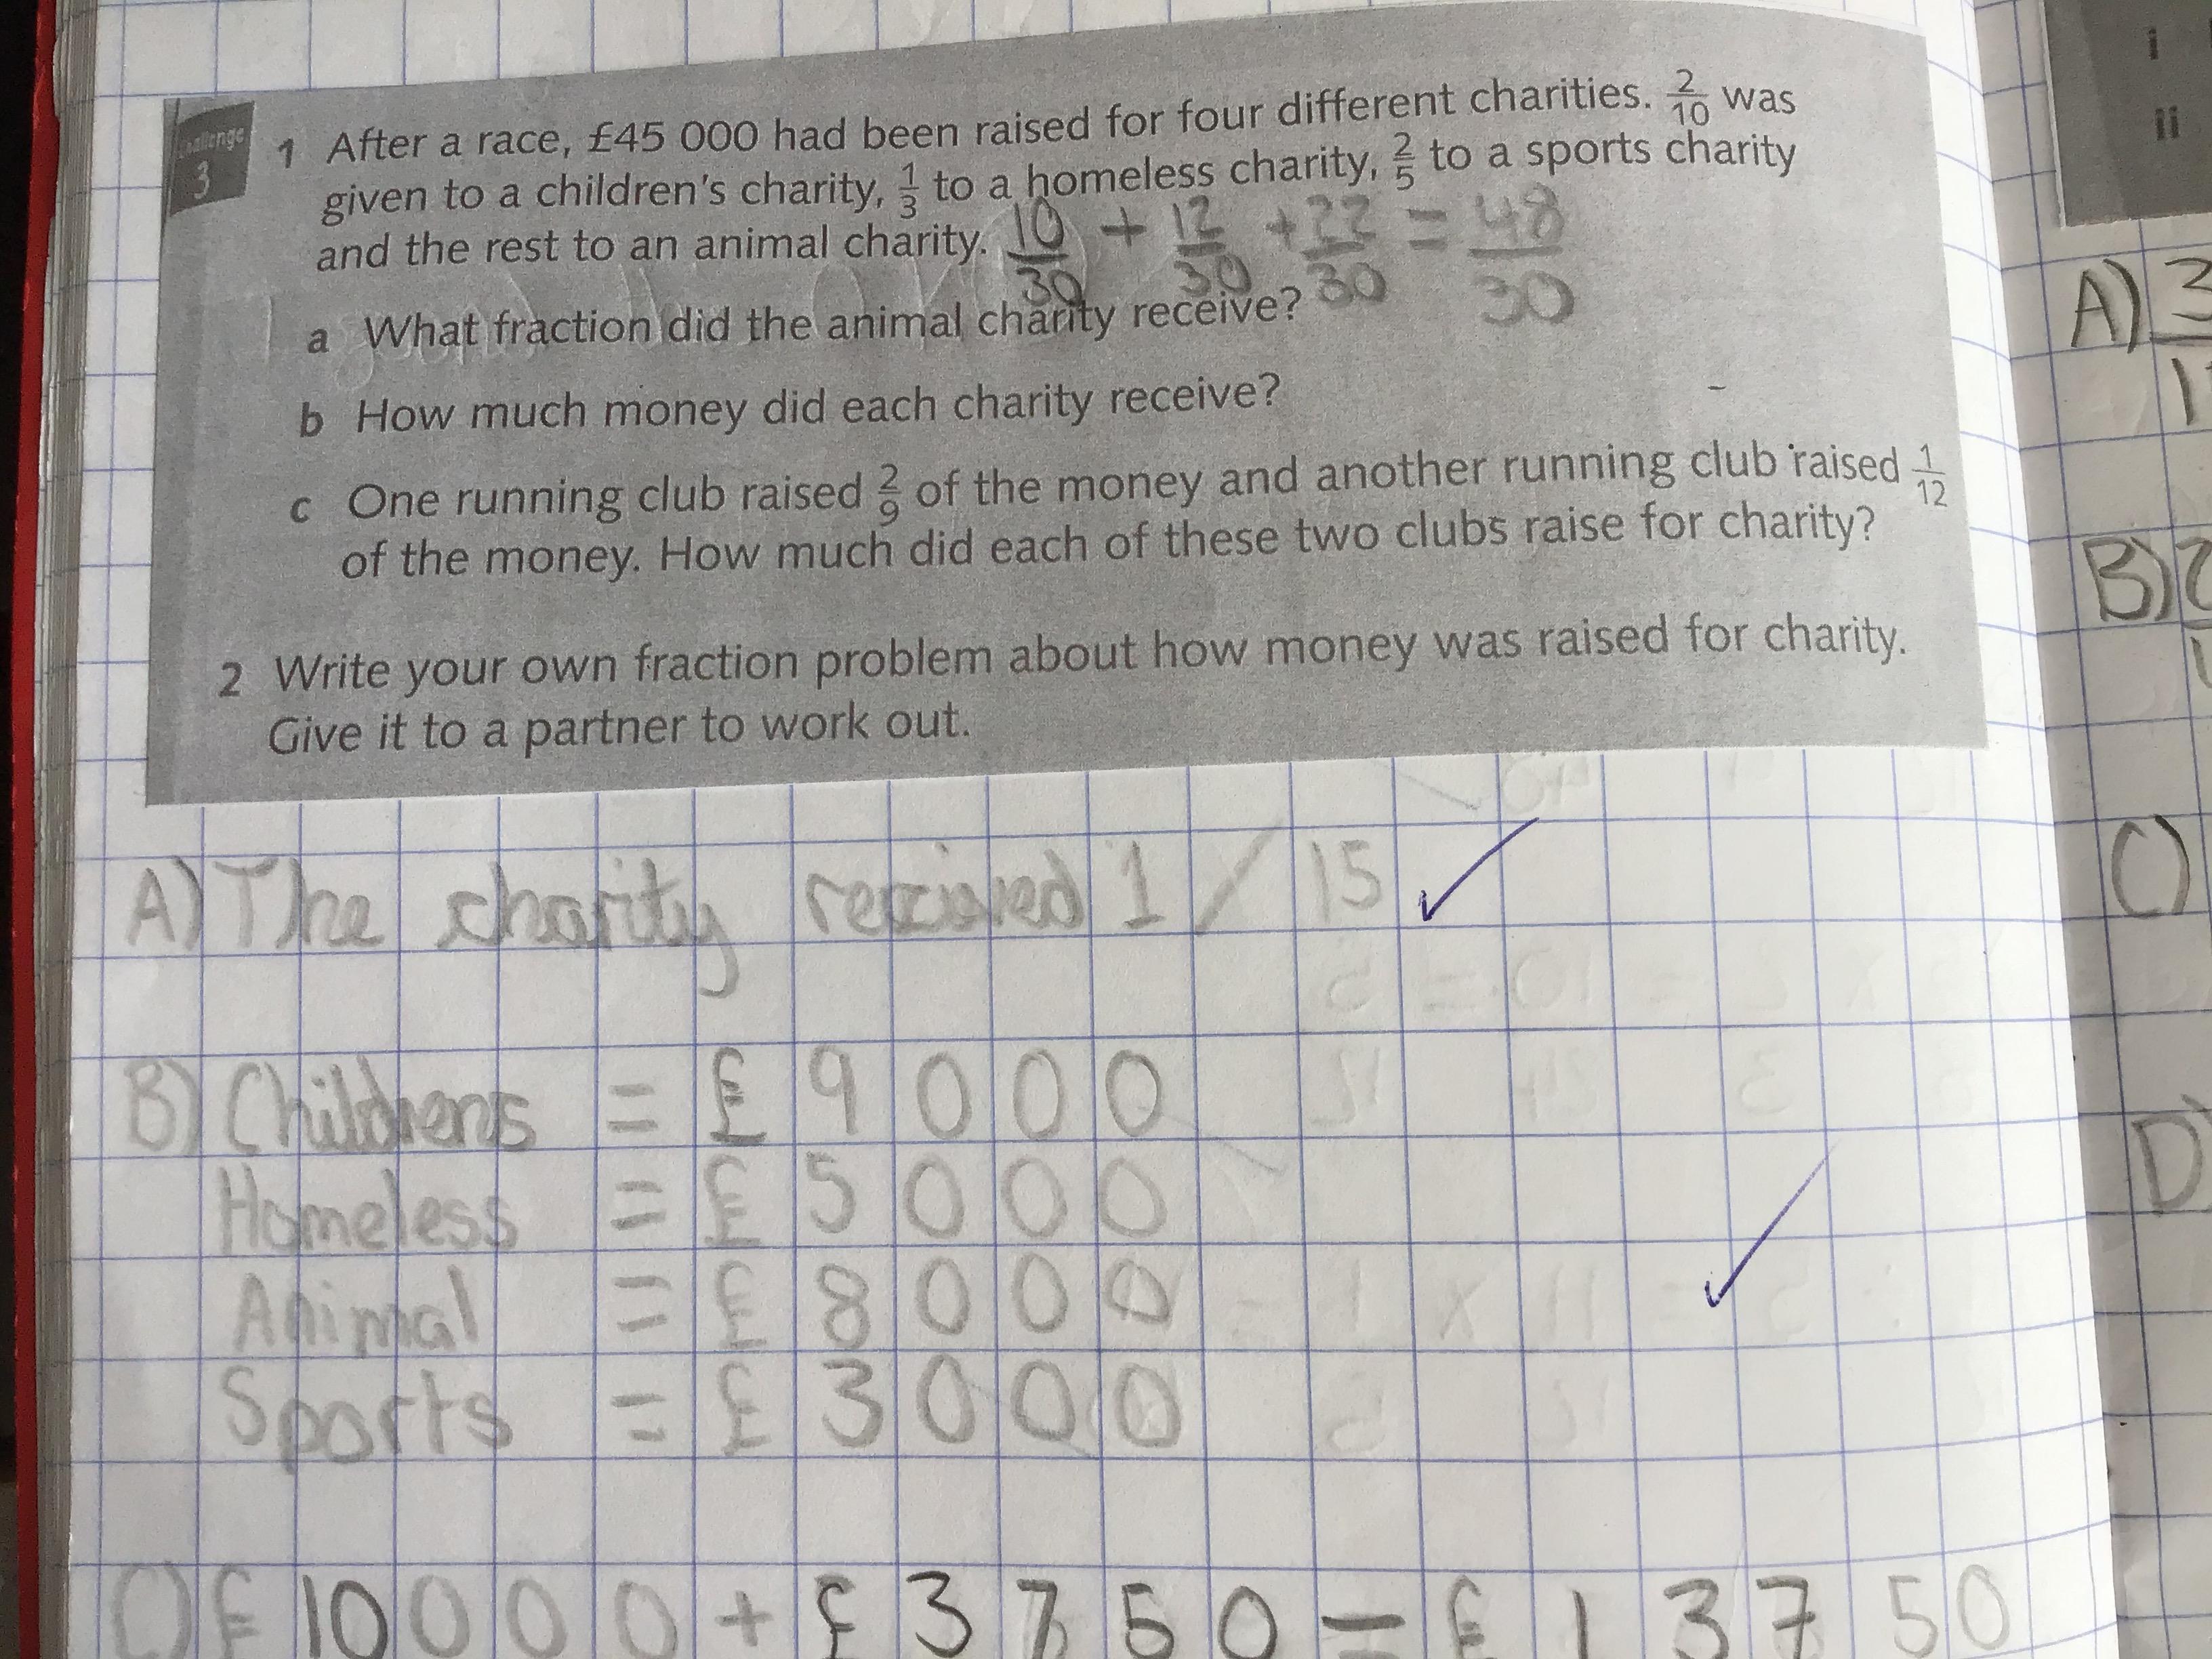 Challenge
3
1 After a race, £45 000 had been raised for four different charities. 2/10 was
given to a children's charity, 1/3 to a homeless charity, 2/5 to a sports charity
and the rest to an animal charity. 10/30 + 12/30 + 22/30 = 48/30
a What fraction did the animal charity receive?
b How much money did each charity receive?
c One running club raised 2/9 of the money and another running club raised 1/12
of the money. How much did each of these two clubs raise for charity?
2 Write your own fraction problem about how money was raised for charity.
Give it to a partner to work out.
A) The charity 1/15
B) Childrens = £9000
Homeless = £5000
Animal = £8000
Sports = £3000
C) £10000 + £3750 = £13750
i
ii
A) 3
B) 2
C)
D)